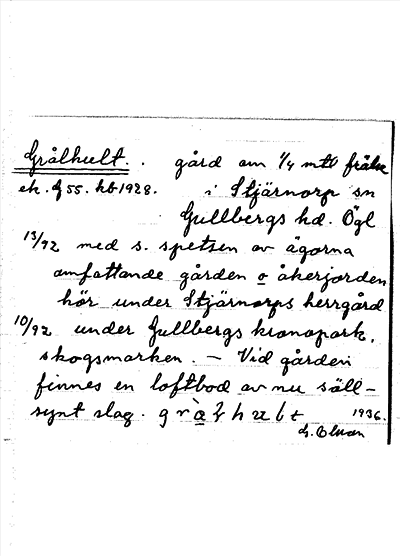 Grålhult. . gård om 1/4 mtl frälse
ek. bl 55. hb 1928. i Stjärnorp sn
Gullbergs hd. Ögl
13/92 med s. spetsen av ägorna
omfattande gården o åkerjorden
hör under Stjärnorps herrgård
10/92 under Gullbergs kronopark,
skogsmarken. – Vid gården
finnes en loftbod av nu säll-
synt slag.
1936.